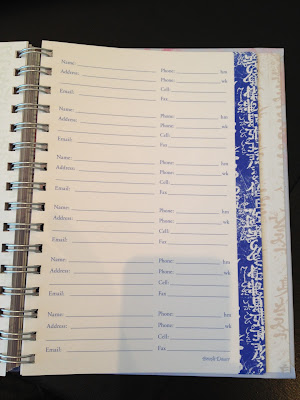 Name: Phone: hm
Address: Phone: wk
Cell:
Email: Fax
Name: Phone: hm
Address: Phone: wk
Cell:
Email: Fax
Name: Phone: hm
Address: Phone: wk
Cell:
Email: Fax
Name: Phone: hm
Address: Phone: wk
Cell:
Email: Fax
Name: Phone: hm
Address: Phone: wk
Cell:
Email: Fax
Name: Phone: hm
Address: Phone: wk
Cell:
Email: Fax